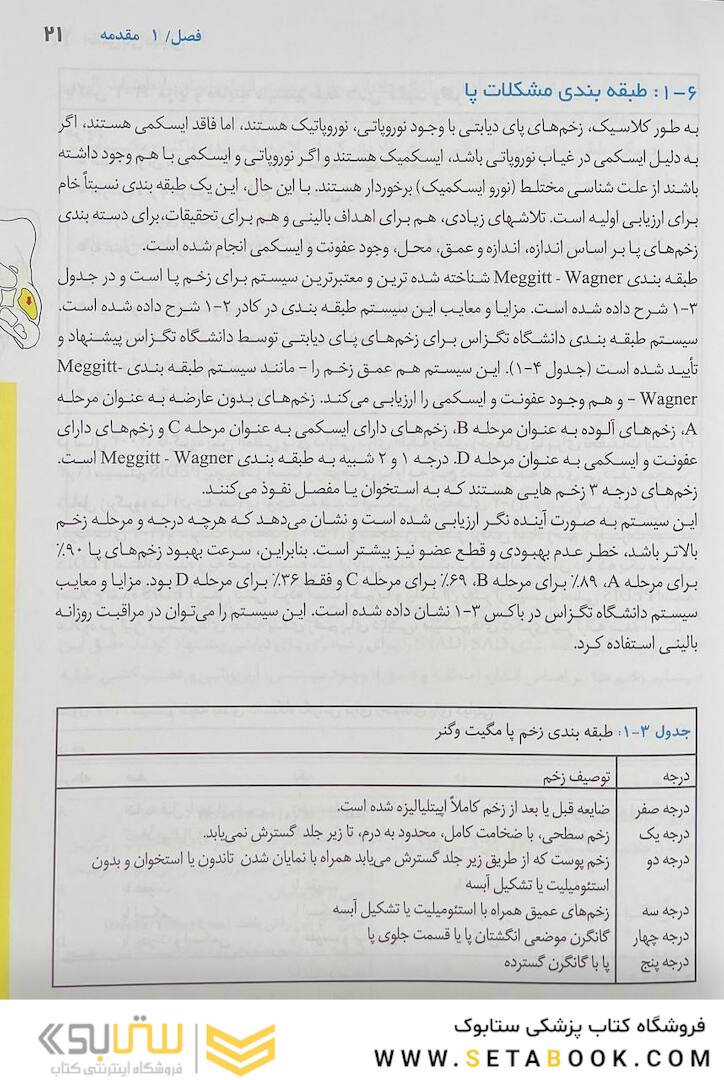 فصل/ ۱ مقدمه ۲۱
۱-۶: طبقه بندی مشکلات پا
به طور کلاسیک، زخم‌های پای دیابتی با وجود نوروپاتی، نوروپاتیک هستند، اما فاقد ایسکمی هستند، اگر
به دلیل ایسکمی در غیاب نوروپاتی باشد، ایسکمیک هستند و اگر نوروپاتی و ایسکمی با هم وجود داشته
باشند از علت شناسی مختلط (نورو ایسکمیک) برخوردار هستند. با این حال، این یک طبقه بندی نسبتاً خام
برای ارزیابی اولیه است. تلاشهای زیادی، هم برای اهداف بالینی و هم برای تحقیقات،برای دسته بندی
زخم‌های پا بر اساس اندازه، اندازه و عمق، محل، وجود عفونت و ایسکمی انجام شده است.
طبقه بندی Meggitt - Wagner شناخته شده ترین و معتبرترین سیستم برای زخم پا است و در جدول
۱-۳ شرح داده شده است. مزایا و معایب این سیستم طبقه بندی در کادر ۲-۱ شرح داده شده است.
سیستم طبقه بندی دانشگاه تگزاس برای زخم‌های پای دیابتی توسط دانشگاه تگزاس پیشنهاد و
تأیید شده است (جدول ۴-۱). این سیستم هم عمق زخم را – مانند سیستم طبقه بندی Meggitt-
Wagner – و هم وجود عفونت و ایسکمی را ارزیابی می‌کند. زخم‌های بدون عارضه به عنوان مرحله
A، زخم‌های آلوده به عنوان مرحله B، زخم‌های دارای ایسکمی به عنوان مرحله C و زخم‌های دارای
عفونت و ایسکمی به عنوان مرحله D. درجه ۱ و ۲ شبیه به طبقه بندی Meggitt - Wagner است.
زخم‌های درجه ۳ زخم هایی هستند که به استخوان یا مفصل نفوذ می‌کنند.
این سیستم به صورت آینده نگر ارزیابی شده است و نشان می‌دهد که هرچه درجه و مرحله زخم
بالاتر باشد، خطر عدم بهبودی و قطع عضو نیز بیشتر است. بنابراین، سرعت بهبود زخم‌های پا ۹۰٪
برای مرحله A، ۸۹٪ برای مرحله B، ۶۹٪ برای مرحله C و فقط ۳۶٪ برای مرحله D بود. مزایا و معایب
سیستم دانشگاه تگزاس در باکس ۳-۱ نشان داده شده است. این سیستم را می‌توان در مراقبت روزانه
بالینی استفاده کرد.
جدول ۳-۱: طبقه بندی زخم پا مگیت وگنر
درجه توصیف زخم
درجه صفر ضایعه قبل یا بعد از زخم کاملاً اپیتلیالیزه شده است.
درجه یک زخم سطحی، با ضخامت کامل، محدود به درم، تا زیر جلد گسترش نمی‌یابد.
درجه دو زخم پوست که از طریق زیر جلد گسترش می‌یابد همراه با نمایان شدن تاندون یا استخوان و بدون
استئومیلیت یا تشکیل آبسه
درجه سه زخم‌های عمیق همراه با استئومیلیت یا تشکیل آبسه
درجه چهار گانگرن موضعی انگشتان پا یا قسمت جلوی پا
درجه پنج پا با گانگرن گسترده
فروشگاه کتاب پزشکی ستابوک
WWW.SETABOOK.COM
ستابوک
فروشگاه اینترنتی کتاب